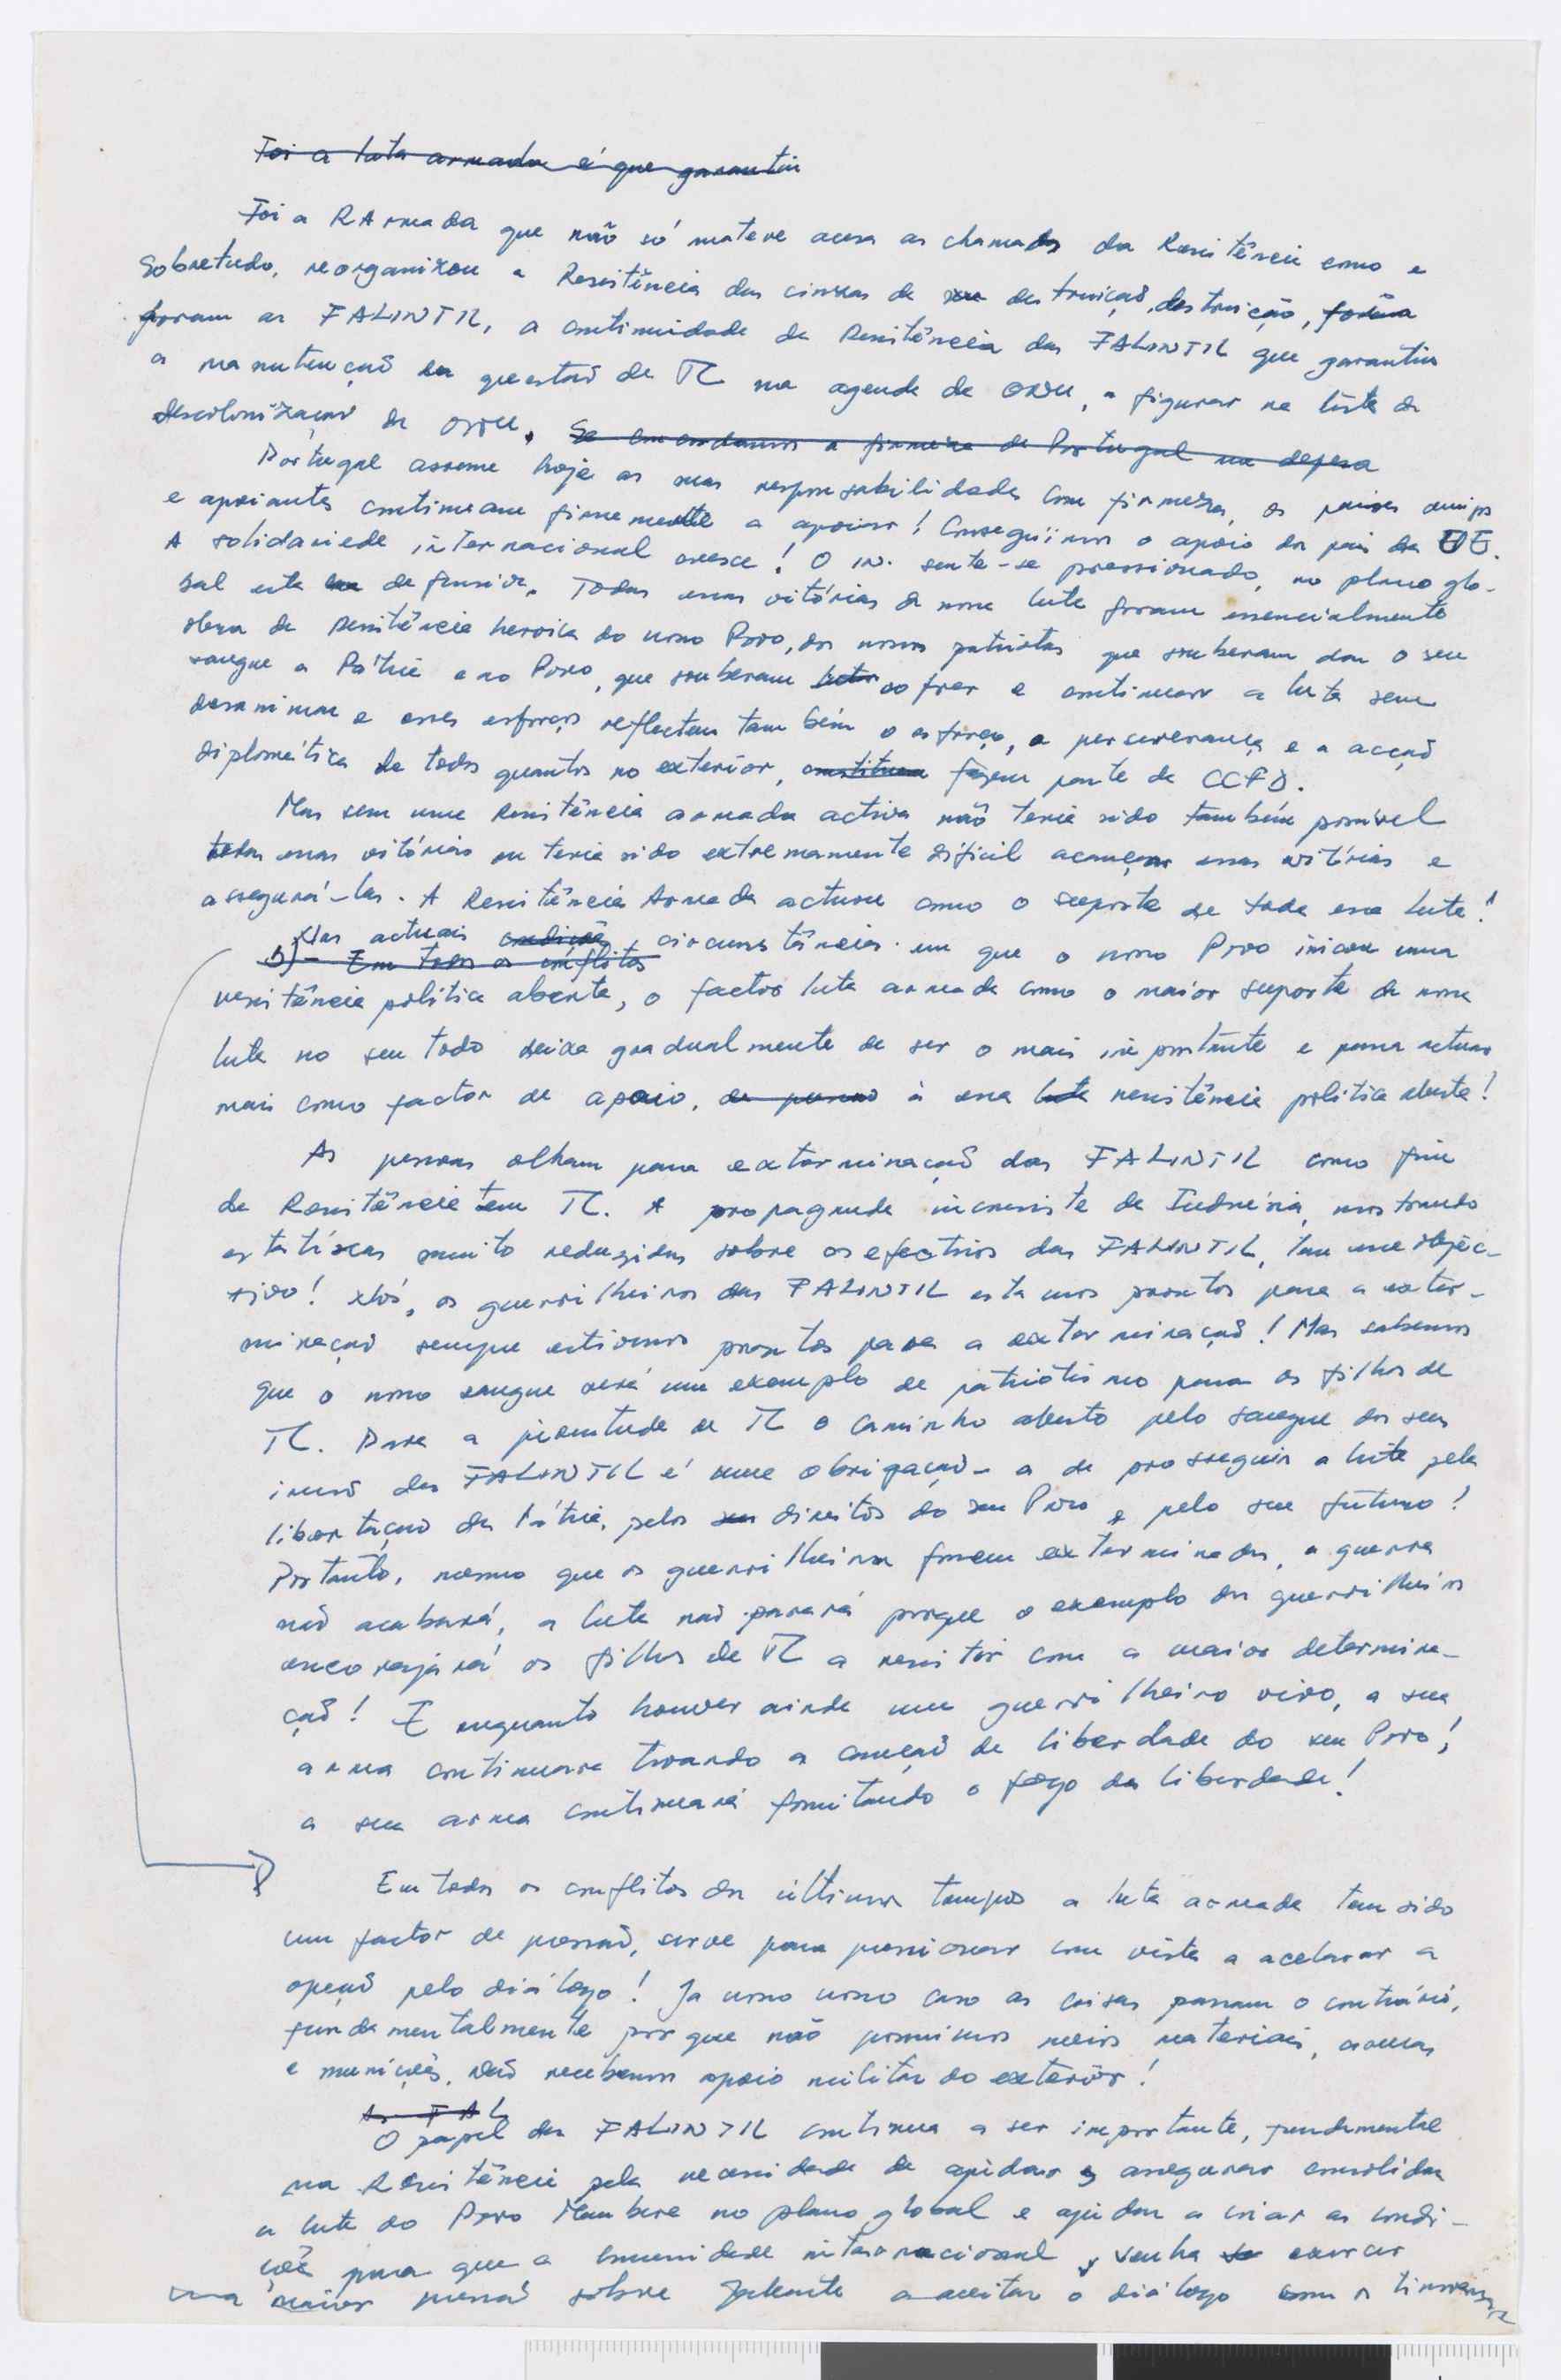 Foi a luta armada é que garantiu
Foi a RArmada que não só mateve acesa as chamas da Resistência como e
sobretudo, reorganizou a Resistência das cinzas de destruiçaõ, destruição,
foram as FALINTIL, a continuidade da Resistência das FALINTIL que garantiu
a manutençaõ da questaõ de TL na agenda da ONU, a figurar na lista da
descolonizaçaõ da ONU. Se encaramos a firmeza de Portugal na defesa
Portugal assume hoje as suas responsabilidades com firmeza, os países amigos
e apoiantes continuam firmemente a apoiar! Conseguimos o apoio dos país da
A solidariedade internacional cresce! O IN. sente-se pressionado, no plano glo-
bal está na defensiva. Todas essas vitórias da nossa luta foram essencialmente
obra da Resistência heroica do nosso Povo, dos nossos patriotas que souberam dar o seu
sangue a Pátria e ao Povo, que souberam lutar sofrer e continuar a luta sem
desanimar e esses esforços reflectem também o esforço, a perseverança e a acçaõ
diplomática de todos quantos no exterior, constituem fazem parte da CCFD.
Mas sem uma Resistência armada activa não teria sido também possível
todas essas vitórias ou teria sido extremamente difícil alcançar essas vitórias e
assegurá-las. A Resistência Armada actuou como o suporte de toda essa luta!
Nas actuais condições circunstâncias em que o nosso Povo iniciou uma
5)- Em todos os conflitos
resistência política aberta, o factor luta armada como o maior suporte da nossa
luta no seu todo deixa gradualmente de ser o mais importante e passa actuar
mais como factor de apoio, à essa luta resistência política aberta!
As pessoas olham para exterminaçaõ das FALINTIL como fim
da Resistência em TL. A propaganda incessante da Indonésia, mostrando
estatíscas muito reduzidas sobre os efectivos das FALINTIL, tem um objec-
tivo! Nós, os guerrilheiros das FALINTIL estamos prontos para a exter-
minaçaõ sempre estivemos prontos para a exterminaçaõ! Mas sabemos
que o nosso sangue será um exemplo de patriotismo para os filhos de
TL. Para a juventude de TL o caminho aberto pelo sangue dos seus
irmaõ das FALINTIL é uma obrigaçaõ - a de prosseguir a luta pela
libertaçaõ da Pátria, pelos direitos do seu Povo e pelo seu futuro!
Portanto, mesmo que os guerrilheiros fossem exterminados, a guerra
naõ acabará, a luta naõ parará porque o exemplo dos guerrilheiros
encorajará os filhos de TL a resistir com a maior determina-
çaõ! E enquanto houver ainda um guerrilheiro vivo, a sua
arma continuara troando a cançaõ de liberdade do seu Povo!
a sua arma continuará fomitando o fogo da liberdade!
Em todos os conflitos dos últimos tempos a luta armada tem sido
um factor de pressaõ, serve para pressionar com vista a acelarar a
opçaõ pelo diálogo! Ja nosso nosso caso as coisas passam o contrário,
fundamentalmente porque não possuimos meios materiais, armas
e muniçoẽs. Naõ recebemos apoio militar do exterior!
As FAL
O papel das FALINTIL continua a ser importante, fundamental
na Resistência pela necessidade de ajudar assegurar consolidar
a luta do Povo Maubere no plano global e ajudar a criar as condi-
çoẽs para que a comunidade internacional, venha exercer
uma maior pressaõ sobre Jakarta a aceitar o diálogo com a